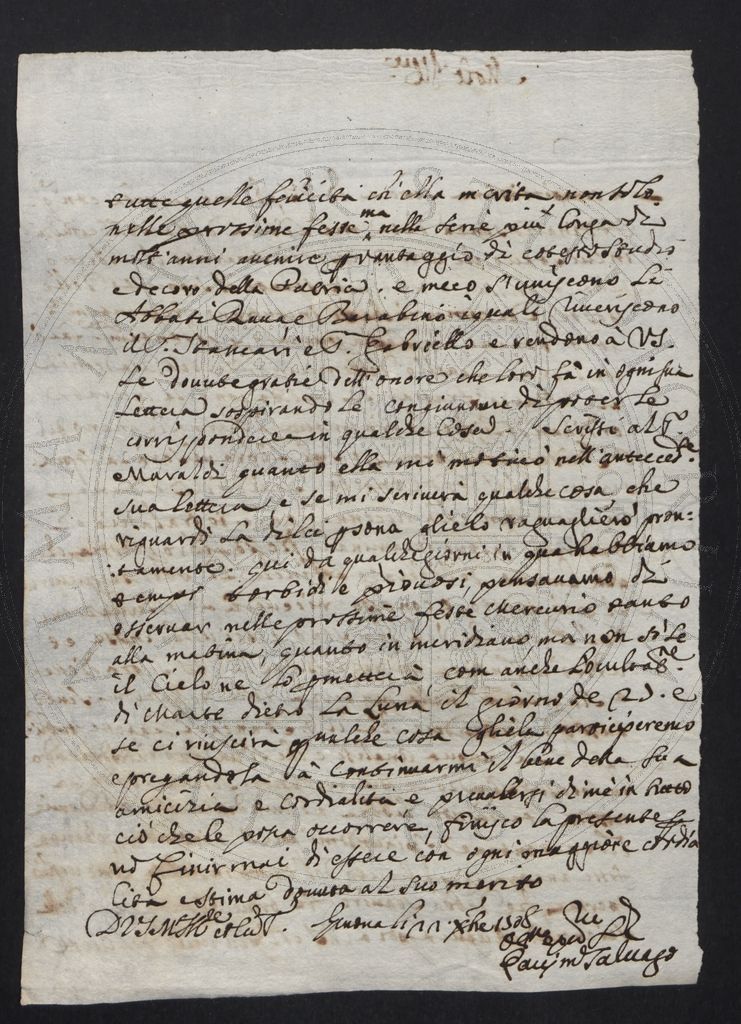 tutte quelle felicità ch'ella merita non solo
nelle prossime feste ma nella serie più longa di
molt'anni avenire p vantaggio di cotesto Studio
e decoro della Patria. e meco s'uniscono li
Abbati Rava e Barabino i quali riveriscono
il S. Stancari e S. Gabriello e rendono à VS.
le dovute gratie dell'onore che loro fà in ogni sua
lettera sospirando le congiunture di poter le
corrispondere in qualche cosa. Scrissi al S.r
Maraldi quanto ella mi motivò nell'antecede.
sua lettera, e se mi scriverà qualche cosa che
riguardi la di lei psona glielo raguaglierò pron:
:tamente. qui da qualche giorni in qua habbiamo
tempi torbidi e piovosi, pensavamo di
osservar nelle prossime feste Mercurio tanto
alla matina, quanto in meridiano, mà non sò se
il Cielo ne lo pmetterà com'anche l'occultat.ne
di Marte dietro la Luna il giorno de 29. e
se ci riuscirà qualche cosa gliela parteciperemo
e pregandola à continuarmi il bene della sua
amicizia e cordialità e prevalersi di me in tutto
ciò che le possa occorrere, finisco la presente p
nõ finir mai di essere con ogni maggiore cordia
lità e stima dovuta al suo merito
D VS M Ill.re Genova li 22 Xbre 1708
Salvago